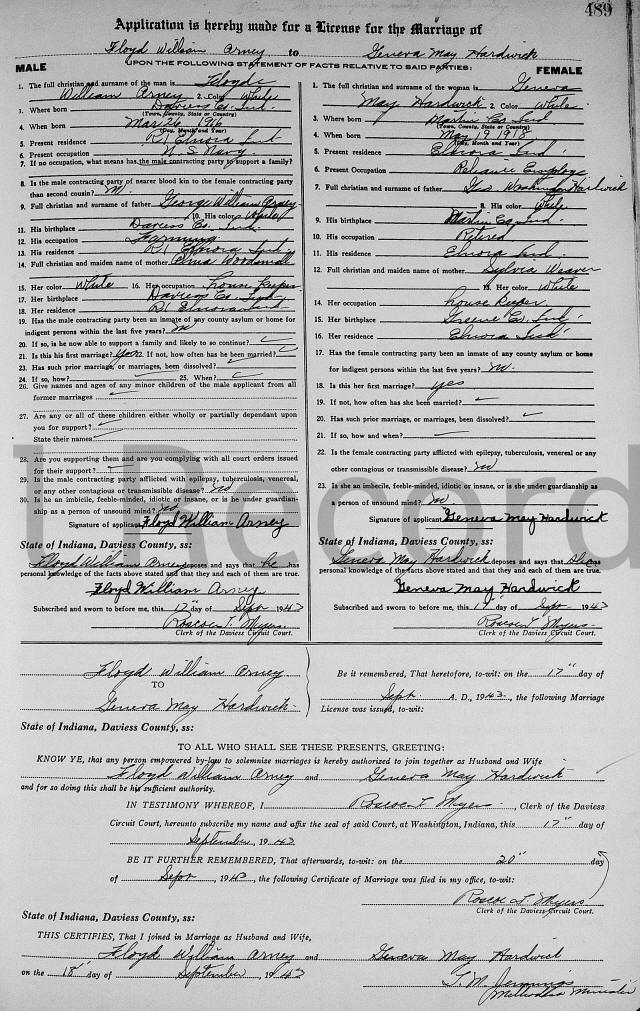 489
Application is hereby made for a License for the Marriage of
Floyd William Arney to Geneva May Hardwick
UPON THE FOLLOWING STATEMENT OF FACTS RELATIVE TO SAID PARTIES:
MALE
1. The full christian and surname of the man is Floyd
William Arney 2. Color White
3. Where born Daviess Co. Ind.
(Town, County, State or Country)
4. When born Mar 26 1916
(Day, Month and Year)
5. Present residence R1 Elnora Ind.
6. Present occupation U.S. Navy
7. If no occupation, what means has the male contracting party to support a family?
8. Is the male contracting party of nearer blood kin to the female contracting party
than second cousin? No
9. Full christian and surname of father George William Arney
10. His color White
11. His birthplace Daviess Co. Ind.
12. His occupation Farming
13. His residence R1 Elnora Ind.
14. Full christian and maiden name of mother Elma Woodsmall
15. Her color White 16. Her occupation House Keeper
17. Her birthplace Daviess Co. Ind
18. Her residence R1 Elnora Ind
19. Has the male contracting party been an inmate of any county asylum or home for
indigent persons within the last five years? No
20. If so, is he now able to support a family and likely to so continue?
21. Is this his first marriage? yes If not, how often has he been married?
23. Has such prior marriage, or marriages, been dissolved?
24. If so, how? 25. When?
26. Give names and ages of any minor children of the male applicant from all
former marriages
27. Are any or all of these children either wholly or partially dependant upon
you for support?
State their names
28. Are you supporting them and are you complying with all court orders issued
for their support?
29. Is the male contracting party afflicted with epilepsy, tuberculosis, venereal,
or any other contagious or transmissible disease? No
30. Is he an imbecile, feeble-minded, idiotic or insane, or is he under guardian-
ship as a person of unsound mind? No
Signature of applicant Floyd William Arney
State of Indiana, Daviess County, ss:
Floyd William Arney deposes and says that he has
personal knowledge of the facts above stated and that they and each of them are true.
Floyd William Arney
Subscribed and sworn to before me, this 17" day of Sept 1943
Roscoe T. Myers
Clerk of the Daviess Circuit Court.
FEMALE
1. The full christian and surname of the woman is Geneva
May Hardwick 2. Color White
3. Where born Martin Co Ind
(Town, County, State or Country)
4. When born May 19 1918
(Day, Month and Year)
5. Present residence Elnora Ind
6. Present Occupation Reliance Employe
7. Full christian and surname of father Geo Washington Hardwick
8. His color White
9. His birthplace Martin Co Ind.
10. His occupation Retired
11. His residence Elnora Ind.
12. Full christian and maiden name of mother Sylvia Weaver
13. Her color White
14. Her occupation House Keeper
15. Her birthplace Greene Co. Ind
16. Her residence Elnora Ind
17. Has the female contracting party been an inmate of any county asylum or home
for indigent persons within the last five years? No
18. Is this her first marriage? yes
19. If not, how often has she been married?
20. Has such prior marriage, or marriages, been dissolved?
21. If so, how and when?
22. Is the female contracting party afflicted with epilepsy, tuberculosis, venereal or any
other contagious or transmissible disease? No
23. Is she an imbecile, feeble-minded, idiotic or insane, or is she under guardianship as
a person of unsound mind? No
Signature of applicant Geneva May Hardwick
State of Indiana, Daviess County, ss:
Geneva May Hardwick deposes and says that she has
personal knowledge of the facts above stated and that they and each of them are true.
Geneva May Hardwick
Subscribed and sworn to before me, this 17 day of Sept 1943
Roscoe T Myers
Clerk of the Daviess Circuit Court.
Floyd William Arney
TO
Geneva May Hardwick
Be it remembered, That heretofore, to-wit: on the 17" day of
Sept. A. D., 1943, the following Marriage
License was issued, to-wit:
State of Indiana, Daviess County, ss:
TO ALL WHO SHALL SEE THESE PRESENTS, GREETING:
KNOW YE, that any person empowered by law to solemnise marriages is hereby authorized to join together as Husband and Wife
Floyd William Arney and Geneva May Hardwick
and for so doing this shall be his sufficient authority.
IN TESTIMONY WHEREOF, I Roscoe T Myers, Clerk of the Daviess
Circuit Court, hereunto subscribe my name and affix the seal of said Court, at Washington, Indiana, this 17" day of
September, 1943
BE IT FURTHER REMEMBERED, That afterwards, to-wit: on the 20" day
of Sept, 1943, the following Certificate of Marriage was filed in my office, to-wit:
Roscoe T Myers
Clerk of the Daviess Circuit Court.
State of Indiana, Daviess County, ss:
THIS CERTIFIES, That I joined in Marriage as Husband and Wife,
Floyd William Arney and Geneva May Hardwick
on the 18" day of September 1943
T. M. Jennings
Methodist Minister
Record